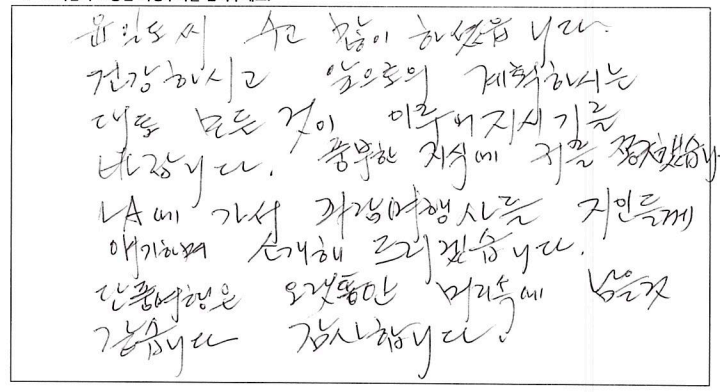 윤일도 씨 수고 많이 하셨읍니다.
건강하시고 앞으로의 계획하시는
대로 모든 것이 이루어지시기를
바랍니다. 풍부한 지식에 저를
LA에 가서 파람여행사를 지인들께
얘기하며 소개해 드리겠습니다.
단풍여행은 오랫동안 머리속에 남을것
같습니다 감사합니다.